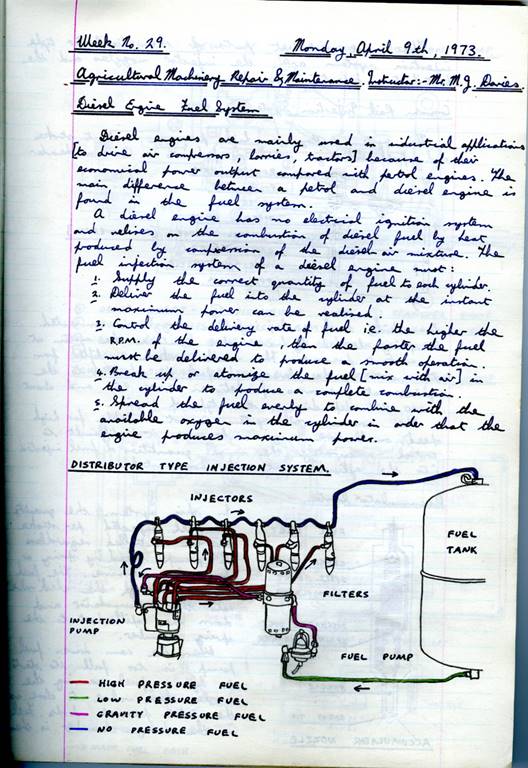 Week No. 29. Monday, April 9th, 1973.
Agricultural Machinery Repair & Maintenance. Instructor:- Mr. M.J. Davies.
Diesel Engine Fuel System.
Diesel engines are mainly used in industrial applications
[to drive air compressors, lorries, tractors] because of their
economical power output compared with petrol engines. The
main difference between a petrol and diesel engine is
found in the fuel system.
A diesel engine has no electrical ignition system
and relives on the combustion of diesel fuel by heat
produced by compression of the diesel-air mixture. The
fuel injection system of a diesel engine must:
1. Supply the correct quantity of fuel to each cylinder.
2. Deliver the fuel into the cylinder at the instant
maximum power can be realised.
3. Control the delivery rate of fuel i.e. the higher the
R.P.M. of the engine, then the faster the fuel
must be delivered to produce a smooth operation.
4. Break up or atomize the fuel [mix with air] in
the cylinder to produce a complete combustion.
5. Spread the fuel evenly to combine with the
available oxygen in the cylinder in order that the
engine produces maximum power.
DISTRIBUTOR TYPE INJECTION SYSTEM.
INJECTORS
FUEL
TANK
FILTERS
INJECTION
PUMP
FUEL PUMP
HIGH PRESSURE FUEL
LOW PRESSURE FUEL
GRAVITY PRESSURE FUEL
NO PRESSURE FUEL